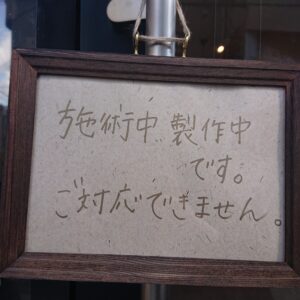 施術中 製作中
です。
ご対応できません。